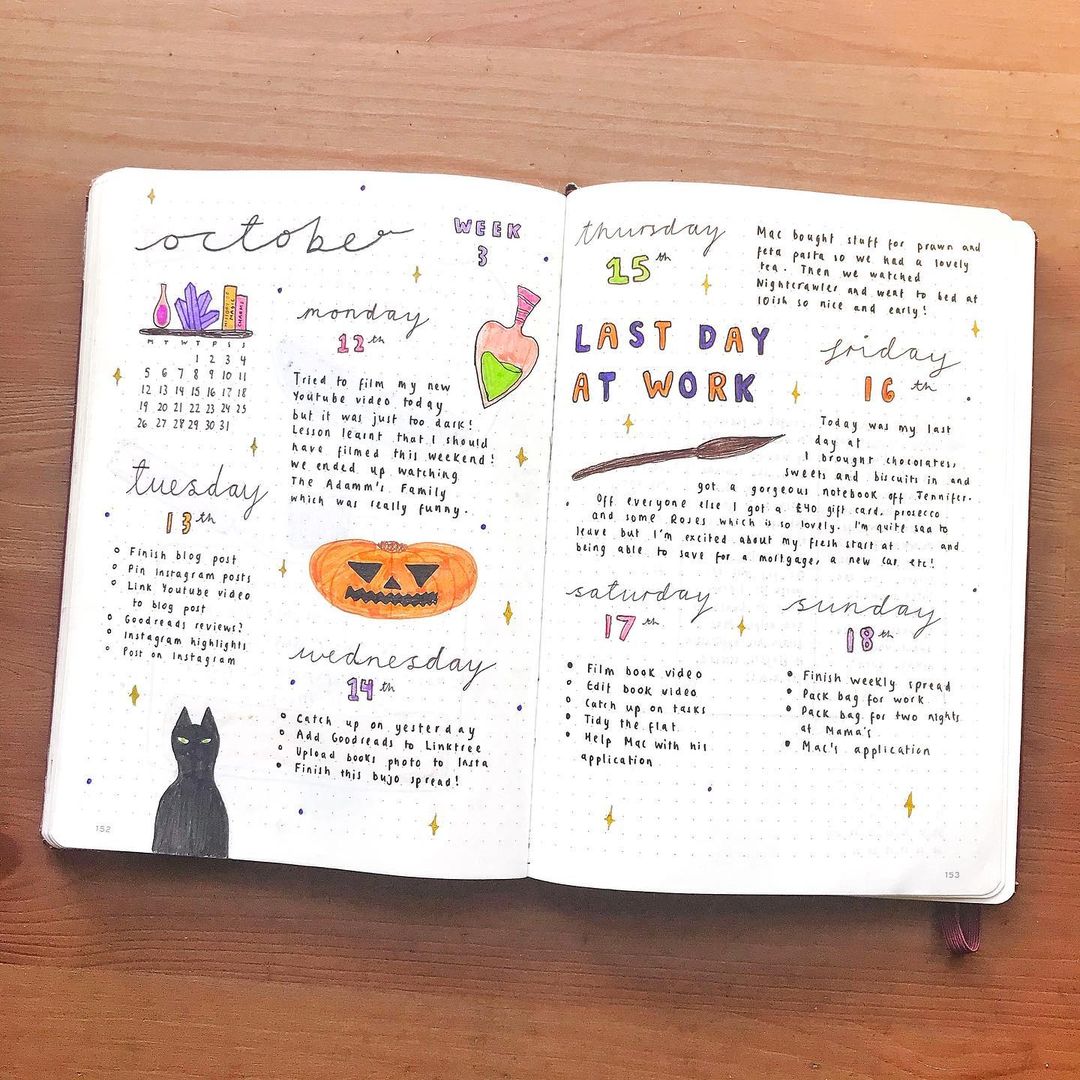 october
WEEK
3
HISTORY OF
MAGIC
CHARMS
M T W T F S S
1 2 3 4
5 6 7 8 9 10 11
12 13 14 15 16 17 18
19 20 21 22 23 24 25
26 27 28 29 30 31
monday
12th
Tried to film my new
Youtube video today
but it was just too dark!
Lesson learnt that I should
have filmed this weekend!
we ended up watching
The Adamm's Family
which was really funny.
tuesday
13th
Finish blog post
Pin Instagram posts
Link Youtube video
to blog post
Goodreads reviews?
Instagram highlights
Post on Instagram
wednesday
14th
Catch up on yesterday
Add Goodreads to Linktree
Upload books photo to Insta
Finish this bujo spread!
152
thursday
15th
Mac bought stuff for prawn and
feta pasta so we had a lovely
tea. Then we watched
Nightcrawler and went to bed at
10ish so nice and early!
LAST DAY
AT WORK
friday
16th
Today was my last
day at
I brought chocolates,
sweets and biscuits in and
got a gorgeous notebook off Jennifer.
Off everyone else I got a £40 gift card, prosecco
and some Roses which is so lovely. I'm quite sad to
leave but I'm excited about my fresh start at .... and
being able to save for a mortgage, a new car etc!
saturday
17th
Film book video
Edit book video
Catch up on tasks
Tidy the flat
Help Mac with his
application
sunday
18th
Finish weekly spread
Pack bag for work
Pack bag for two nights
at Mama's
Mac's application
153